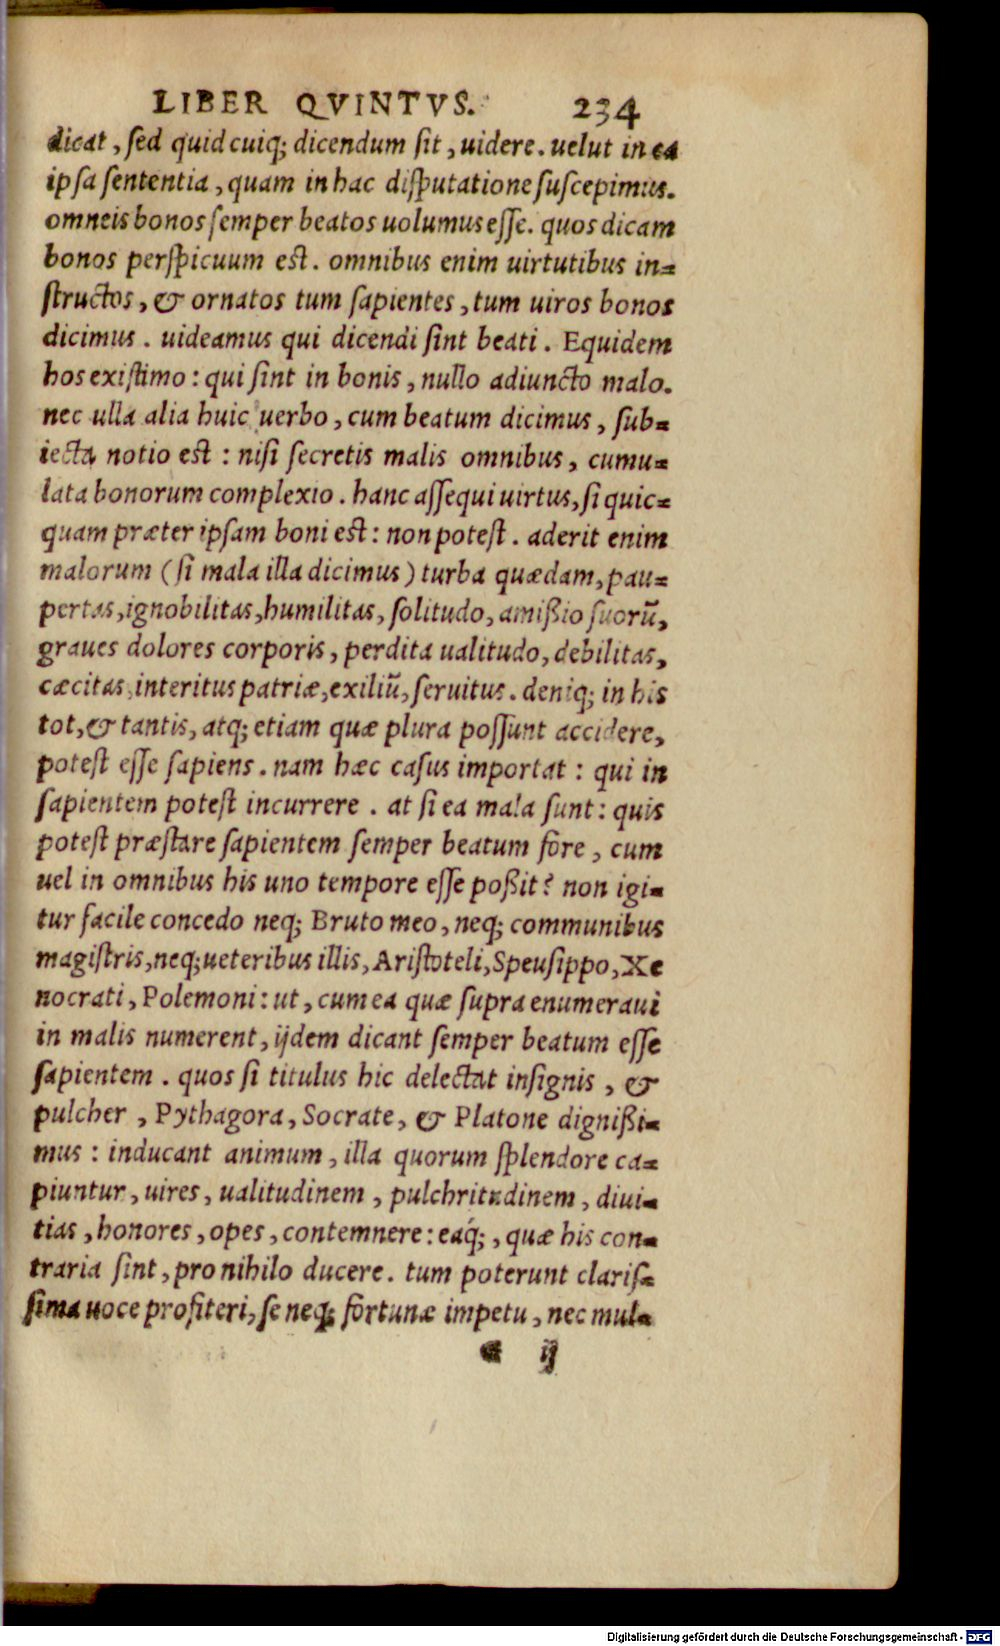 LIBER QVINTVS. 234
dicat, sed quid cuiq; dicendum sit, uidere. uelut in ea
ipsa sententia, quam in hac disputatione suscepimus.
omneis bonos semper beatos uolumus esse. quos dicam
bonos perspicuum est. omnibus enim uirtutibus in-
structos, & ornatos tum sapientes, tum uiros bonos
dicimus. uideamus qui dicendi sint beati. Equidem
hos existimo: qui sint in bonis, nullo adiuncto malo.
nec ulla alia huic uerbo, cum beatum dicimus, sub-
iecta notio est: nisi secretis malis omnibus, cumu-
lata bonorum complexio. hanc assequi uirtus, si quic-
quam præter ipsam boni est: non potest. aderit enim
malorum (si mala illa dicimus) turba quædam, pau-
pertas, ignobilitas, humilitas, solitudo, amißio suorũ,
graues dolores corporis, perdita ualitudo, debilitas,
cæcitas, interitus patriæ, exiliũ, seruitus. deniq; in his
tot, & tantis, atq; etiam quæ plura possunt accidere,
potest esse sapiens. nam hæc casus importat: qui in
sapientem potest incurrere. at si ea mala sunt: quis
potest præstare sapientem semper beatum fore, cum
uel in omnibus his uno tempore esse poßit? non igi-
tur facile concedo neq; Bruto meo, neq; communibus
magistris, neq; ueteribus illis, Aristoteli, Speusippo, Xe
nocrati, Polemoni: ut, cum ea quæ supra enumeraui
in malis numerent, ijdem dicant semper beatum esse
sapientem. quos si titulus hic delectat insignis, &
pulcher, Pythagora, Socrate, & Platone dignißi-
mus: inducant animum, illa quorum splendore ca-
piuntur, uires, ualitudinem, pulchritudinem, diui-
tias, honores, opes, contemnere: eaq́;, quæ his con-
traria sint, pro nihilo ducere. tum poterunt claris-
sima uoce profiteri, se neq; fortunæ impetu, nec mul-
ij
Digitalisierung gefördert durch die Deutsche Forschungsgemeinschaft - DFG